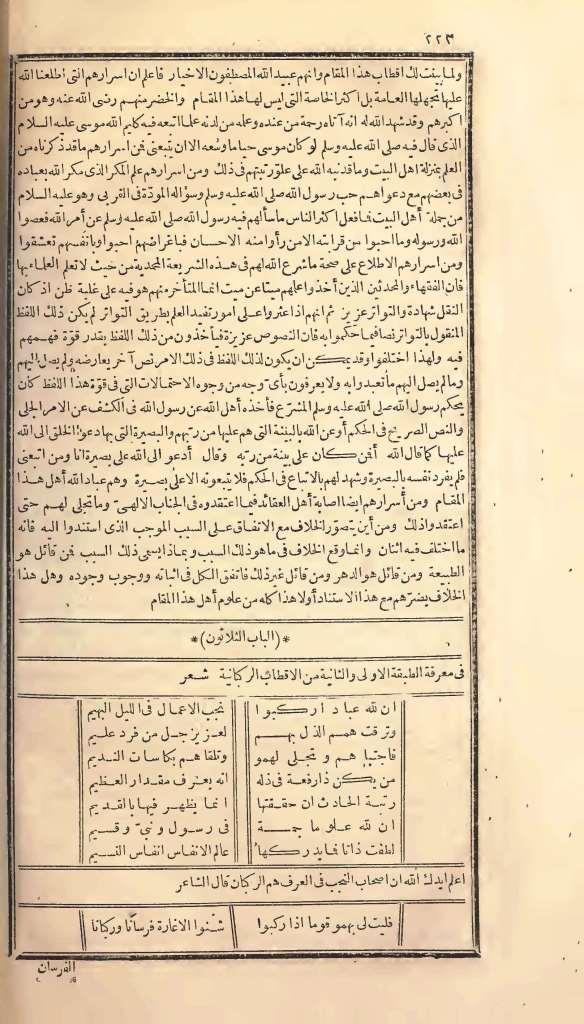 ٢٢٣
ولما بينت لك أقطاب هذا المقام وانهم عبيد الله المصطفون الاخيار فاعلم ان اسرارهم التي اطلعنا الله
عليها تجهلها العامة بل أكثر الخاصة التي ليس لها هذا المقام والخضر منهم رضى الله عنه وهو من
اكبرهم وقد شهد الله له انه آتاه رحمة من عنده وعلمه من لدنه علما اتبعه فيه كليم الله موسى عليه السلام
الذى قال فيه صلى الله عليه وسلم لو كان موسى حيا ما وسعه الا ان يتبعنى فمن اسرارهم ما قد ذكرناه من
العلم بمنزلة اهل البيت وما قد نبه الله على علو رتبتهم في ذلك ومن اسرارهم علم المكر الذى مكر الله بعباده
في بغضهم مع دعواهم حب رسول الله صلى الله عليه وسلم وسؤاله المودّة في القربى وهو عليه السلام
من جملة أهل البيت فما فعل اكثر الناس ما سألهم فيه رسول الله صلى الله عليه وسلم عن أمر الله فعصوا
الله ورسوله وما احبوا من قرابته الا من رأوا منه الاحسان فباغراضهم احبوا وبانفسهم تعشقوا
ومن اسرارهم الاطلاع على صحة ما شرع الله لهم في هذه الشريعة المحمدية من حيث لا تعلم العلماء بها
فان الفقهاء والمحدثين الذين أخذوا علمهم ميتا عن ميت انما المتأخر منهم هو فيه على غلبة ظن اذ كان
النقل شهادة والتواتر عزيز ثم انهم اذا عثروا على امور تفيد العلم بطريق التواتر لم يكن ذلك اللفظ
المنقول بالتواتر نصا فيما حكموا به فان النصوص عزيزة فيأخذون من ذلك اللفظ بقدر قوّة فهمهم
فيه ولهذا اختلفوا وقد يمكن ان يكون لذلك اللفظ في ذلك الامر نص آخر يعارضه ولم يصل اليهم
وما لم يصل اليهم ما تعبدوا به ولا يعرفون بأى وجه من وجوه الاحتمالات التي في قوّة هذا اللفظ كان
يحكم رسول الله صلى الله عليه وسلم المشرّع فأخذه أهل الله عن رسول الله في الكشف عن الامر الجلى
والنص الصريح في الحكم أو عن الله بالبينة التي هم عليها من ربهم والبصيرة التي بها دعوا الخلق الى الله
عليها كما قال الله أفمن كان على بينة من ربه وقال أدعو الى الله على بصيرة انا ومن اتبعنى
فلم يفرد نفسه بالبصيرة وشهد لهم بالاتباع في الحكم فلا يتبعونه الا على بصيرة وهم عباد الله أهل هذا
المقام ومن أسرارهم ايضا اصابة أهل العقائد فيما اعتقدوه في الجناب الالهىّ وما تجلى لهم حتى
اعتقدوا ذلك ومن أين تصوّر الخلاف مع الاتفاق على السبب الموجب الذى استندوا اليه فانه
ما اختلف فيه اثنان وانما وقع الخلاف في ما هو ذلك السبب وبماذا يسمى ذلك السبب فمن قائل هو
الطبيعة ومن قائل هو الدهر ومن قائل غير ذلك فاتفق الكل في اثباته ووجوب وجوده وهل هذا
الخلاف يضرّهم مع هذا الاستناد أو لا هذا كله من علوم أهل هذا المقام
*(الباب الثلاثون)*
في معرفة الطبقة الاولى والثانية من الاقطاب الركبانية شعر
ان لله عبادا ركبوا نجب الاعمال في الليل البهيم
وترقت همم الذل بهم لعزيز جل من فرد عليم
فاجتباهم وتجلى لهمو وتلقاهم بكاسات النديم
من يكن ذا رفعة في ذله انه يعرف مقدار العظيم
رتبة الحادث ان حققتها انما يظهر فيها بالقديم
ان لله علوما جمة في رسول ونبىّ وقسيم
لطفت ذاتا فما يدركها عالم الانفاس انفاس النسيم
اعلم ايدك الله ان اصحاب النجب في العرف هم الركبان قال الشاعر
فليت لى بهمو قوما اذا ركبوا شنوا الاغارة فرسانا وركبانا
الفرسان